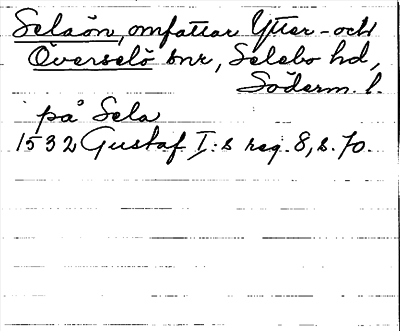 Selaön, omfattar Ytter- och
Överselö snr, Selebo hd,
Söderm. l.
på Sela
1532 Gustaf I:s reg. 8, s. 70.